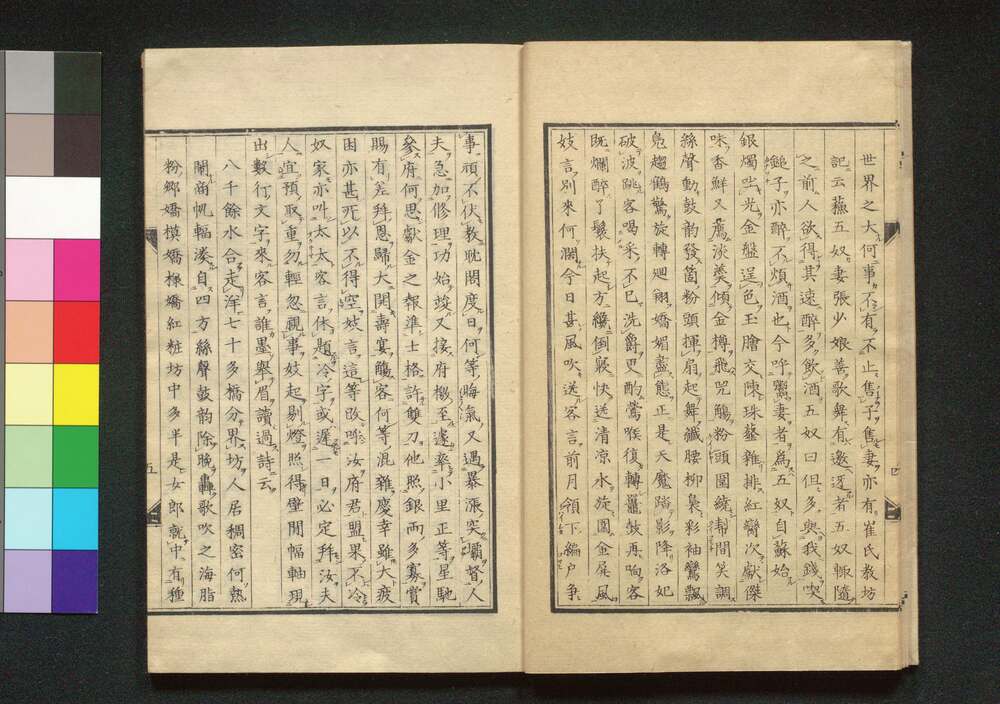 世界之大何事不有不止售子售妻亦有崔氏教坊
記云蘇五奴妻張少娘善歌舞有邀迓者五奴輒隨
之前人欲得其速醉多飲酒五奴曰但多與我錢喫
鎚子亦醉不煩酒也今呼鬻妻者為五奴自蘇始
銀燭吐光金盤逞色玉膾交陳珠蘂雜排紅蠻次獻傑
味香鮮又薦淡羹傾金樽飛兕觴粉頭圍繞幇間笑調
絲聲動鼓韵發箇粉頭揮扇起舞纖腰柳裊彩袖鸞飄
鳧趨鶴驚旋轉廻翔嬌媚盡態正是天魔踏影降洛妃
破波跳客喝采不已洗爵更酌鶯喉復轉鼉鼓再响客
既爛醉了鬟扶起方纔倒寢快送清凉水旋圍金屏風
妓言別來何濶今日甚風吹送客言前月領下編戶爭
事頑不伏教耽閣度日何等晦氣又遇暴漲突壩督人
夫急加修理功始竣又接府檄至遽率小里正等星馳
參府何思獻金之報準士格許雙刀他照銀兩多寡賞
賜有差拜恩歸大開壽宴觴客何等混雜慶幸雖大疲
困亦甚死以不得空妓言這等敢呼汝府君盟果不冷
奴家亦叫太太客言休題冷字或遲一日必定拜汝夫
人宜預取重勿輕忽視事妓起剔燈照得壁間幅軸現
出數行文字來客言誰墨擧眉讀過詩云
八千餘水合走洋七十多橋分界坊人居稠密何熱
閙商帆輻湊自四方絲聲鼓韵除晚轟歌吹之海脂
粉鄉嬌模嬌樣嬌紅粧坊中多半是女郎就中有種
五